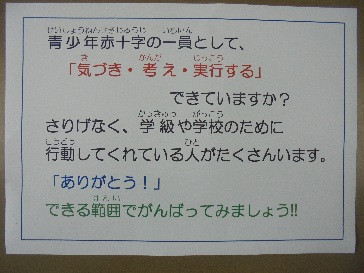 青少年赤十字の一員として、
「気づき・考え・実行する」
できていますか？
さりげなく、学級や学校のために
行動してくれている人がたくさんいます。
「ありがとう！」
できる範囲でがんばってみましょう!!